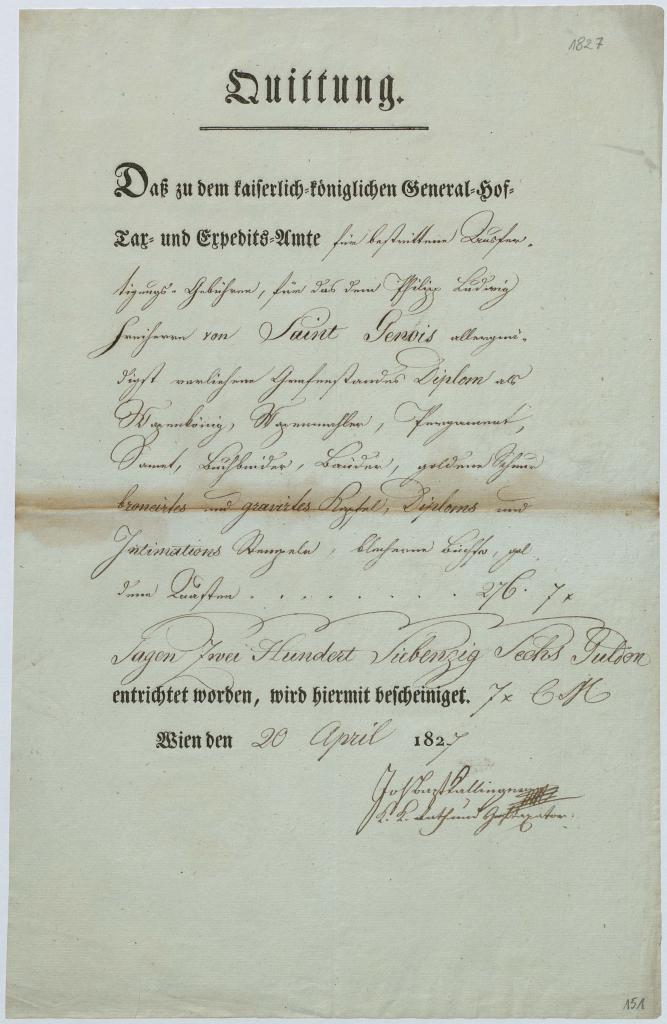 1827
Quittung.
Daß zu dem kaiserlich-königlichen General-Hof-
Tax- und Expedits-Amte für bestrittene Ausfer-
tigungs-Gebühren, für das dem Philipp Ludwig
Freiherrn von Saint Genois allergnä-
digst verliehene Grafenstandes Diplom als
Wapenkönig, Wapenmahler, Pergament,
Samet, Buchbinder, Bänder, goldene Schnur
broncirtes und gravirtes Kapsel, Diploms und
Intimations Stempeln, blecherne Büchse, gol
dene Quasten . . . . . . . 276. 7 x
Sagen Zwei Hundert Siebenzig Sechs Gulden
entrichtet worden, wird hiermit bescheiniget. 7 x C M
Wien den 20 April 1827
K. K. Rath und Hoftaxator.
151